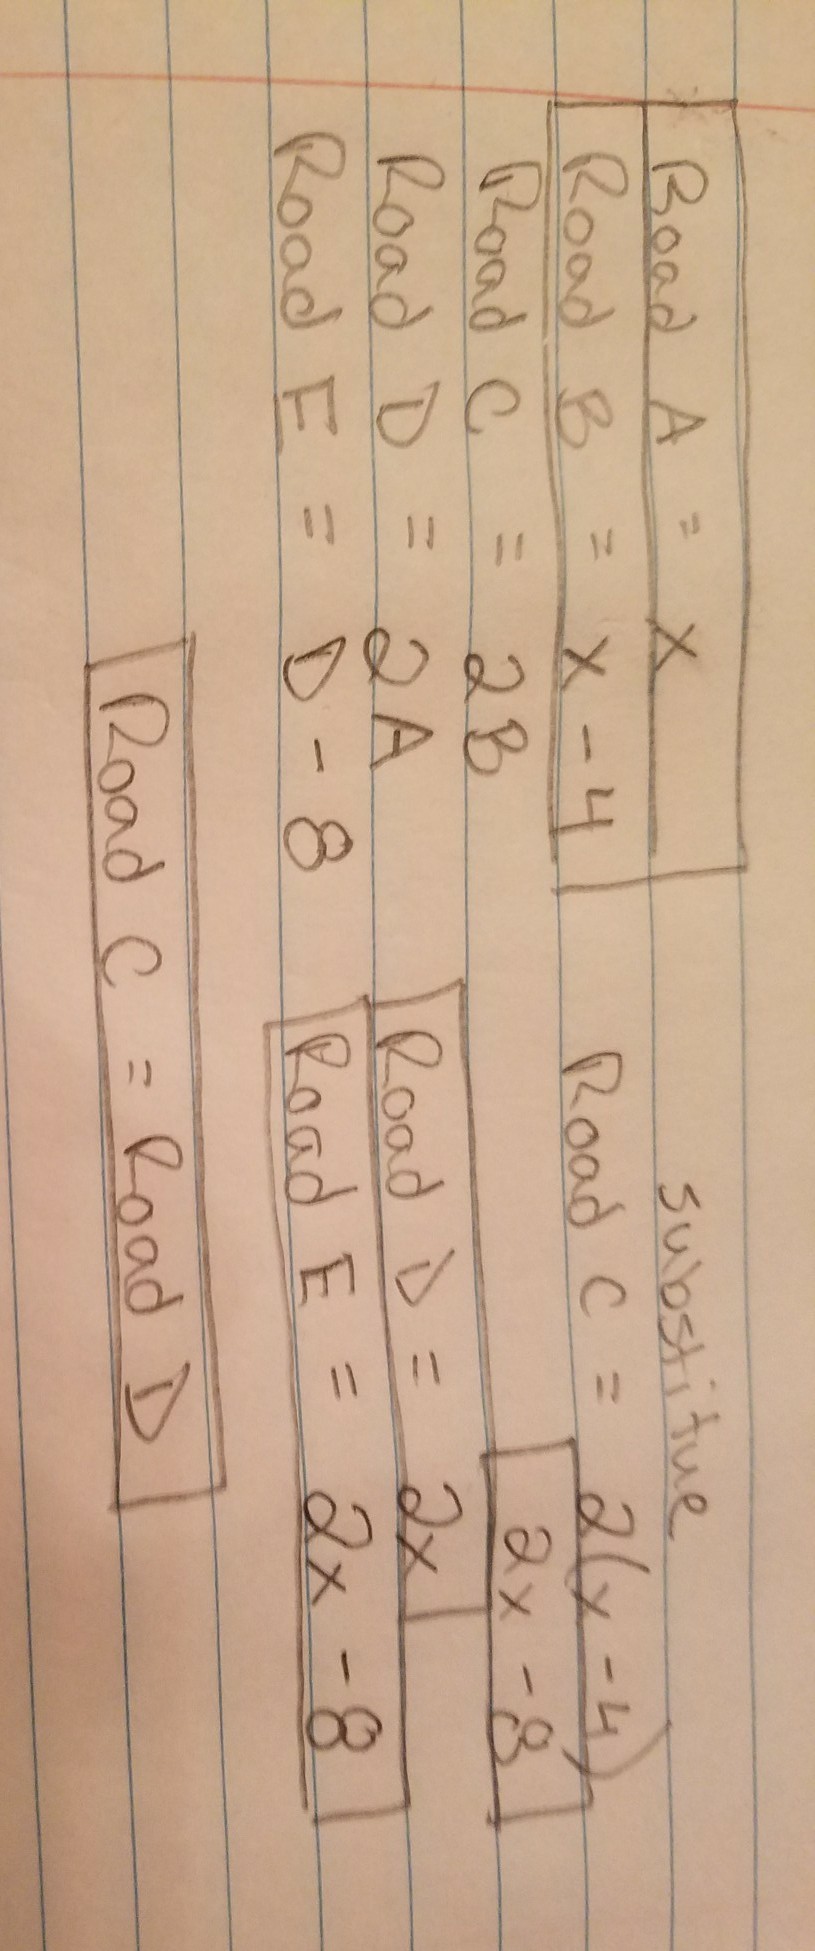 substitue
Road A = x
Road B = x - 4 Road C = 2(x - 4)
Road C = 2B 2x - 8
Road D = 2A Road D = 2x
Road E = D - 8 Road E = 2x - 8
Road C = Road D